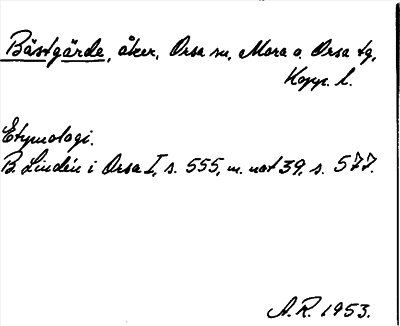 Bästgärde, åker, Orsa sn, Mora o. Orsa tg,
Kopp. l.
Etymologi.
B. Lindén i Orsa I, s. 555, m. not 39, s. 577.
A.R. 1953.